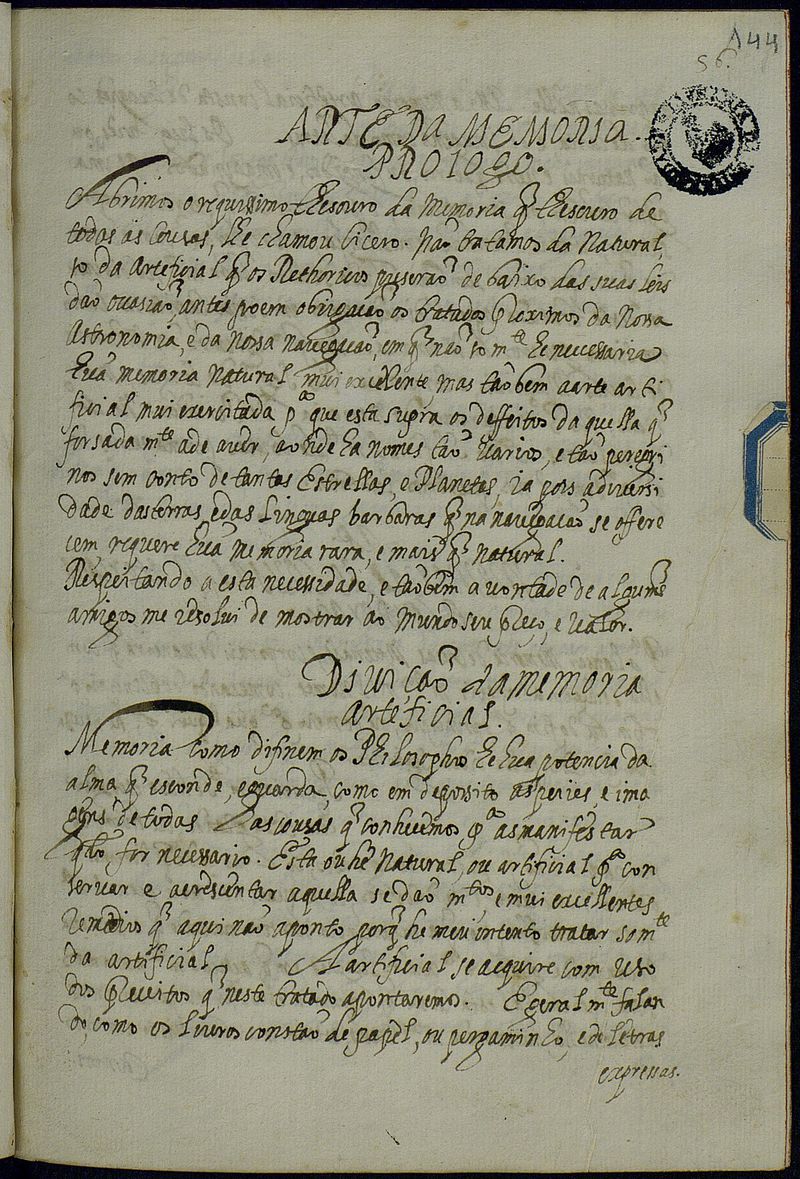 144
56.
ARTE DA MEMORIA.
PROLOGO.
Abrimos o riquissimo thesouro da Memoria q̃ thesouro de
todas as cousas, lhe chamou Cicero. Não tratamos da Natural,
so da Arteficial q̃ os Rethoricos puserão debaixo das suas leis
dão ocasião, antes poem obrigacão os tratados proximos da Nossa
Astronomia, e da nossa navegacão, em q̃ não so mte he necessaria
hũa memoria natural mui excellente, mas tãobem a arte arti
ficial mui exercitada pa que esta supra os deffeitos daquella q̃
forsada mte a de aver, aonde ha nomes tão varios, e tão peregri
nos sem conto de tantas Estrellas, e Planetas, ia pois a diversi
dade das terras, e das Linguas barbaras q̃ na navegacão se offere
cem requere hũa Memoria rara, e mais q̃ natural.
Respeitando a esta necessidade, e tãobem a vontade de alguns
amigos me resolui de mostrar ao Mundo seu preço, e valor.
Divição da memoria
arteficial.
Memoria como difinem os Philosophos he hũa potencia da
alma q̃ esconde, e guarda, como em deposito as speciies, e ima
gens de todas as cousas q̃ conhecemos pa as manifestar
qdo for necessario. Esta ou he Natural, ou artificial pa con
servar e acrescentar aquella se dão mtos e mui excellentes
remedios q̃ aqui não aponto porq̃ he meu intento tratar somte
da artificial. A artificial se acquire com uso
dos preceitos q̃ neste tratado apontaremos. E geral mte falan
do, como os livros constão de papel, ou pergaminho, e de letras
expressas.